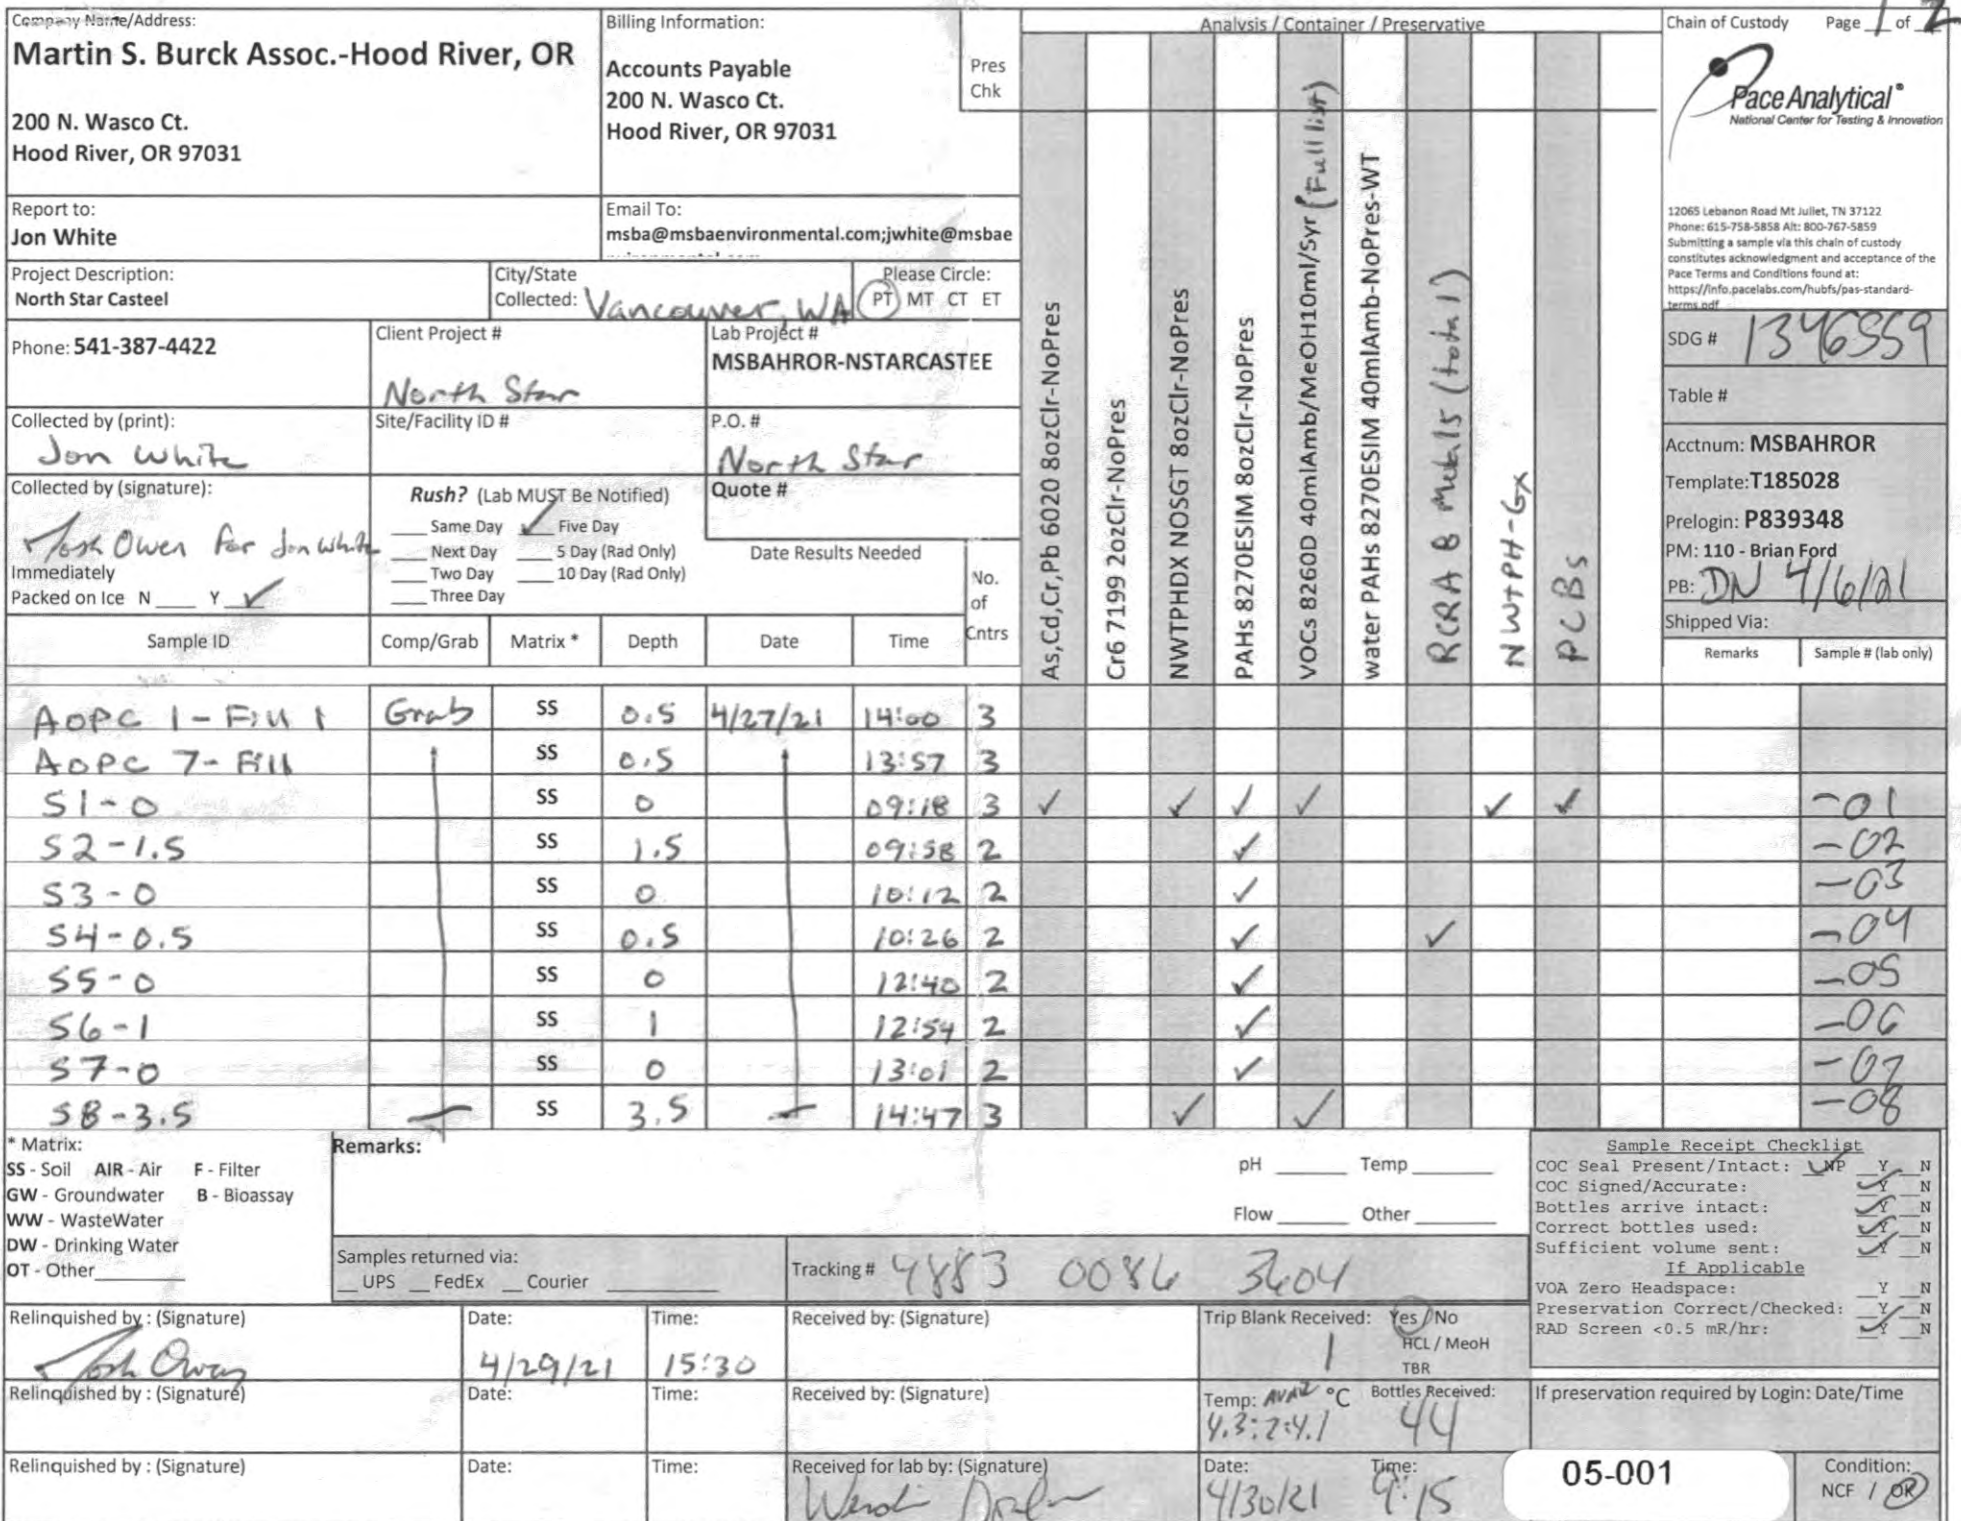 Company Name/Address:
Martin S. Burck Assoc.-Hood River, OR
200 N. Wasco Ct.
Hood River, OR 97031
Billing Information:
Accounts Payable
200 N. Wasco Ct.
Hood River, OR 97031
Pres
Chk
Analysis / Container / Preservative
Chain of Custody Page 1 of 2
Pace Analytical®
National Center for Testing & Innovation
12065 Lebanon Road Mt Juliet, TN 37122
Phone: 615-758-5858 Alt: 800-767-5859
Submitting a sample via this chain of custody
constitutes acknowledgment and acceptance of the
Pace Terms and Conditions found at:
https://info.pacelabs.com/hubfs/pas-standard-
terms.pdf
Report to:
Jon White
Email To:
msba@msbaenvironmental.com;jwhite@msbae
Project Description:
North Star Casteel
City/State
Collected: Vancouver, WA
Please Circle:
PT MT CT ET
Phone: 541-387-4422
Client Project #
North Star
Lab Project #
MSBAHROR-NSTARCASTEE
Collected by (print):
Jon White
Site/Facility ID #
P.O. #
North Star
Collected by (signature):
Josh Owen for Jon White
Immediately
Packed on Ice N ___ Y ✓
Rush? (Lab MUST Be Notified)
___ Same Day ✓ Five Day
___ Next Day ___ 5 Day (Rad Only)
___ Two Day ___ 10 Day (Rad Only)
___ Three Day
Quote #
Date Results Needed
No.
of
Cntrs
As,Cd,Cr,Pb 6020 8ozClr-NoPres
Cr6 7199 2ozClr-NoPres
NWTPHDX NOSGT 8ozClr-NoPres
PAHs 8270ESIM 8ozClr-NoPres
VOCs 8260D 40mlAmb/MeOH10ml/Syr (Full list)
water PAHs 8270ESIM 40mlAmb-NoPres-WT
RCRA 8 Metals (total)
NWTPH-Gx
PCBs
SDG # 1346559
Table #
Acctnum: MSBAHROR
Template: T185028
Prelogin: P839348
PM: 110 - Brian Ford
PB: DN 4/6/21
Shipped Via:
Sample ID Comp/Grab Matrix * Depth Date Time
Remarks Sample # (lab only)
AOPC 1-Fill 1 Grab SS 0.5 4/27/21 14:00 3
AOPC 7-Fill SS 0.5 13:57 3
S1-0 SS 0 09:18 3 ✓ ✓ ✓ ✓ ✓ ✓ -01
S2-1.5 SS 1.5 09:58 2 ✓ -02
S3-0 SS 0 10:12 2 ✓ -03
S4-0.5 SS 0.5 10:26 2 ✓ ✓ -04
S5-0 SS 0 12:40 2 ✓ -05
S6-1 SS 1 12:54 2 ✓ -06
S7-0 SS 0 13:01 2 ✓ -07
S8-3.5 SS 3.5 14:47 3 ✓ ✓ -08
* Matrix:
SS - Soil AIR - Air F - Filter
GW - Groundwater B - Bioassay
WW - WasteWater
DW - Drinking Water
OT - Other
Remarks:
pH ___ Temp ___
Flow ___ Other ___
Samples returned via:
__ UPS __ FedEx __ Courier
Tracking # 9883 0086 3604
Sample Receipt Checklist
COC Seal Present/Intact: ✓ NP _Y _N
COC Signed/Accurate: ✓ Y _N
Bottles arrive intact: ✓ Y _N
Correct bottles used: ✓ Y _N
Sufficient volume sent: ✓ Y _N
If Applicable
VOA Zero Headspace: _Y _N
Preservation Correct/Checked: _Y _N
RAD Screen <0.5 mR/hr: ✓ Y _N
Relinquished by : (Signature)
Josh Owen
Date:
4/29/21
Time:
15:30
Received by: (Signature)
Trip Blank Received: Yes / No
1
HCL / MeoH
TBR
Relinquished by : (Signature)
Date:
Time:
Received by: (Signature)
Temp: °C
Bottles Received:
44
If preservation required by Login: Date/Time
Relinquished by : (Signature)
Date:
Time:
Received for lab by: (Signature)
Date:
4/30/21
Time:
9:15
05-001
Condition:
NCF / OK